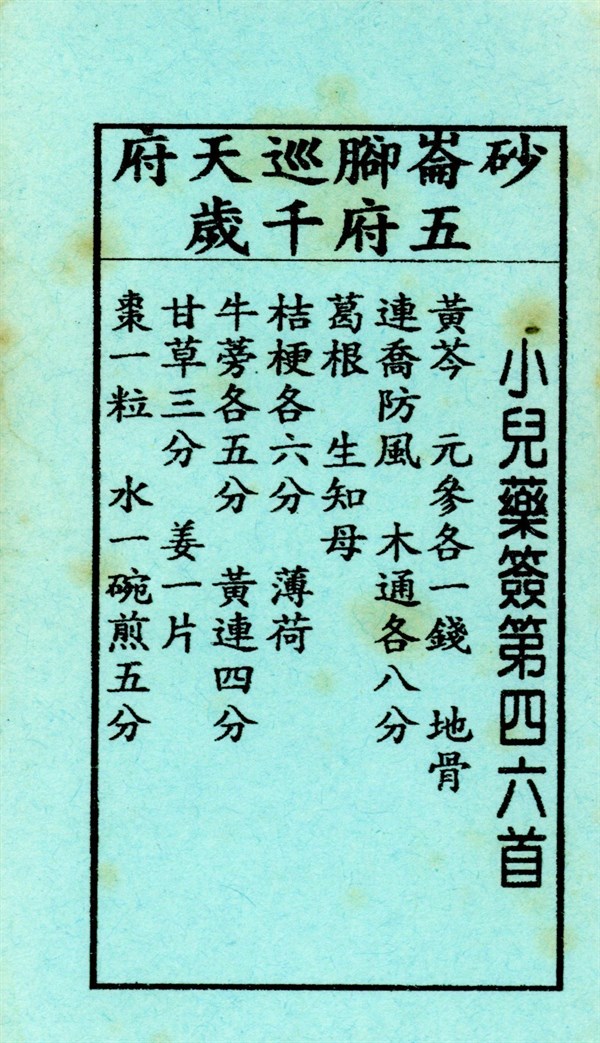 砂崙腳巡天府
五府千歲
小兒藥簽第四六首
黃芩 元參各一錢 地骨
連喬防風 木通各八分
葛根 生知母
桔梗各六分 薄荷
牛蒡各五分 黃連四分
甘草三分 姜一片
棗一粒 水一碗煎五分